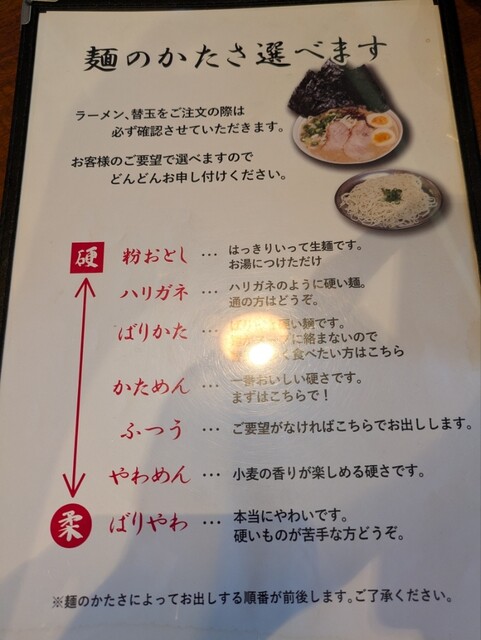 麺のかたさ選べます
ラーメン、替玉をご注文の際は
必ず確認させていただきます。
お客様のご要望で選べますので
どんどんお申し付けください。
硬
粉おとし … はっきりいって生麺です。
お湯につけただけ
ハリガネ … ハリガネのように硬い麺。
通の方はどうぞ。
ばりかた … 硬い麺です。
スープに絡まないので
食べたい方はこちら
かためん … 一番おいしい硬さです。
まずはこちらで！
ふつう … ご要望がなければこちらでお出しします。
やわめん … 小麦の香りが楽しめる硬さです。
柔
ばりやわ … 本当にやわいです。
硬いものが苦手な方どうぞ。
※麺のかたさによってお出しする順番が前後します。ご了承ください。